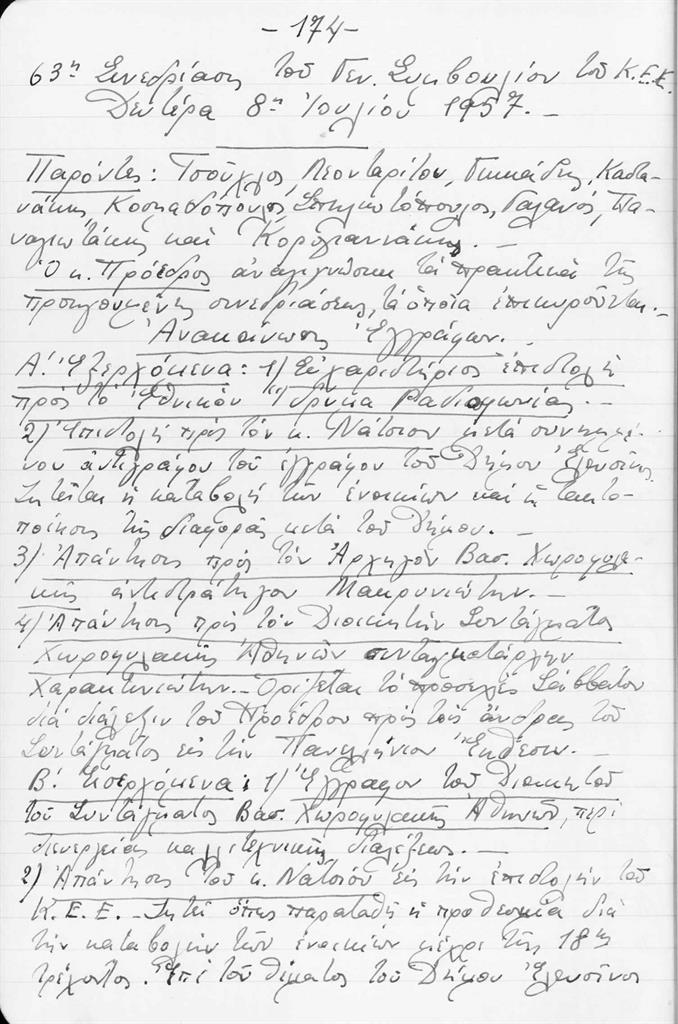 - 174 -
63η Συνεδρίασις τοῦ Γεν. Συμβουλίου τοῦ Κ.Ε.Ε.
Δευτέρα 8η Ἰουλίου 1957. -
Παρόντες: Τσοῦχλος, Λεονταρίτου, Γιμιάδης, Καστα-
νάκης, Κοσμαδόπουλος, Σπηλιωτόπουλος, Γαλανός, Πα-
ναγιωτάκης καὶ Κορογιαννάκης. -
Ὁ κ. Πρόεδρος ἀναγιγνώσκει τὰ πρακτικὰ τῆς
προηγουμένης συνεδριάσεως, τὰ ὁποῖα ἐπικυροῦνται. -
Ἀνακοίνωσις Ἐγγράφων. -
Α'. Ἐξερχόμενα: 1) Εὐχαριστήριος ἐπιστολὴ
πρὸς τὸ Ἐθνικὸν Ἵδρυμα Ραδιοφωνίας. -
2) Ἐπιστολὴ πρὸς τὸν κ. Νάτσιον μετὰ συνημμέ-
νου ἀντιγράφου τοῦ ἐγγράφου τοῦ Δήμου Ἐλευσῖνος.
Ζητεῖται ἡ καταβολὴ τῶν ἐνοικίων καὶ ἡ τακτο-
ποίησις τῆς διαφορᾶς μετὰ τοῦ Δήμου. -
3) Ἀπάντησις πρὸς τὸν Ἀρχηγὸν Βασ. Χωροφυλα-
κῆς ἀντιστράτηγον Μακρυνιώτην. -
4) Ἀπάντησις πρὸς τὸν Διοικητὴν Συντάγματος
Χωροφυλακῆς Ἀθηνῶν συνταγματάρχην
Χαρακτινιώτην. - Ὁρίζεται τὸ προσεχὲς Σάββατον
διὰ διάλεξιν τοῦ Προέδρου πρὸς τοὺς ἄνδρας τοῦ
Συντάγματος εἰς τὴν Πανελλήνιον Ἔκθεσιν. -
Β'. Εἰσερχόμενα: 1) Ἔγγραφον τοῦ Διοικητοῦ
τοῦ Συντάγματος Βασ. Χωροφυλακῆς Ἀθηνῶν, περὶ
διενεργείας καλλιτεχνικῆς διαλέξεως. -
2) Ἀπάντησις τοῦ κ. Νατσιοῦ εἰς τὴν ἐπιστολὴν τοῦ
Κ.Ε.Ε. - Ζητεῖ ὅπως παραταθῇ ἡ προθεσμία διὰ
τὴν καταβολὴν τῶν ἐνοικίων μέχρι τῆς 18ης
τρέχοντος. Ἐπὶ τοῦ θέματος τοῦ Δήμου Ἐλευσῖνος